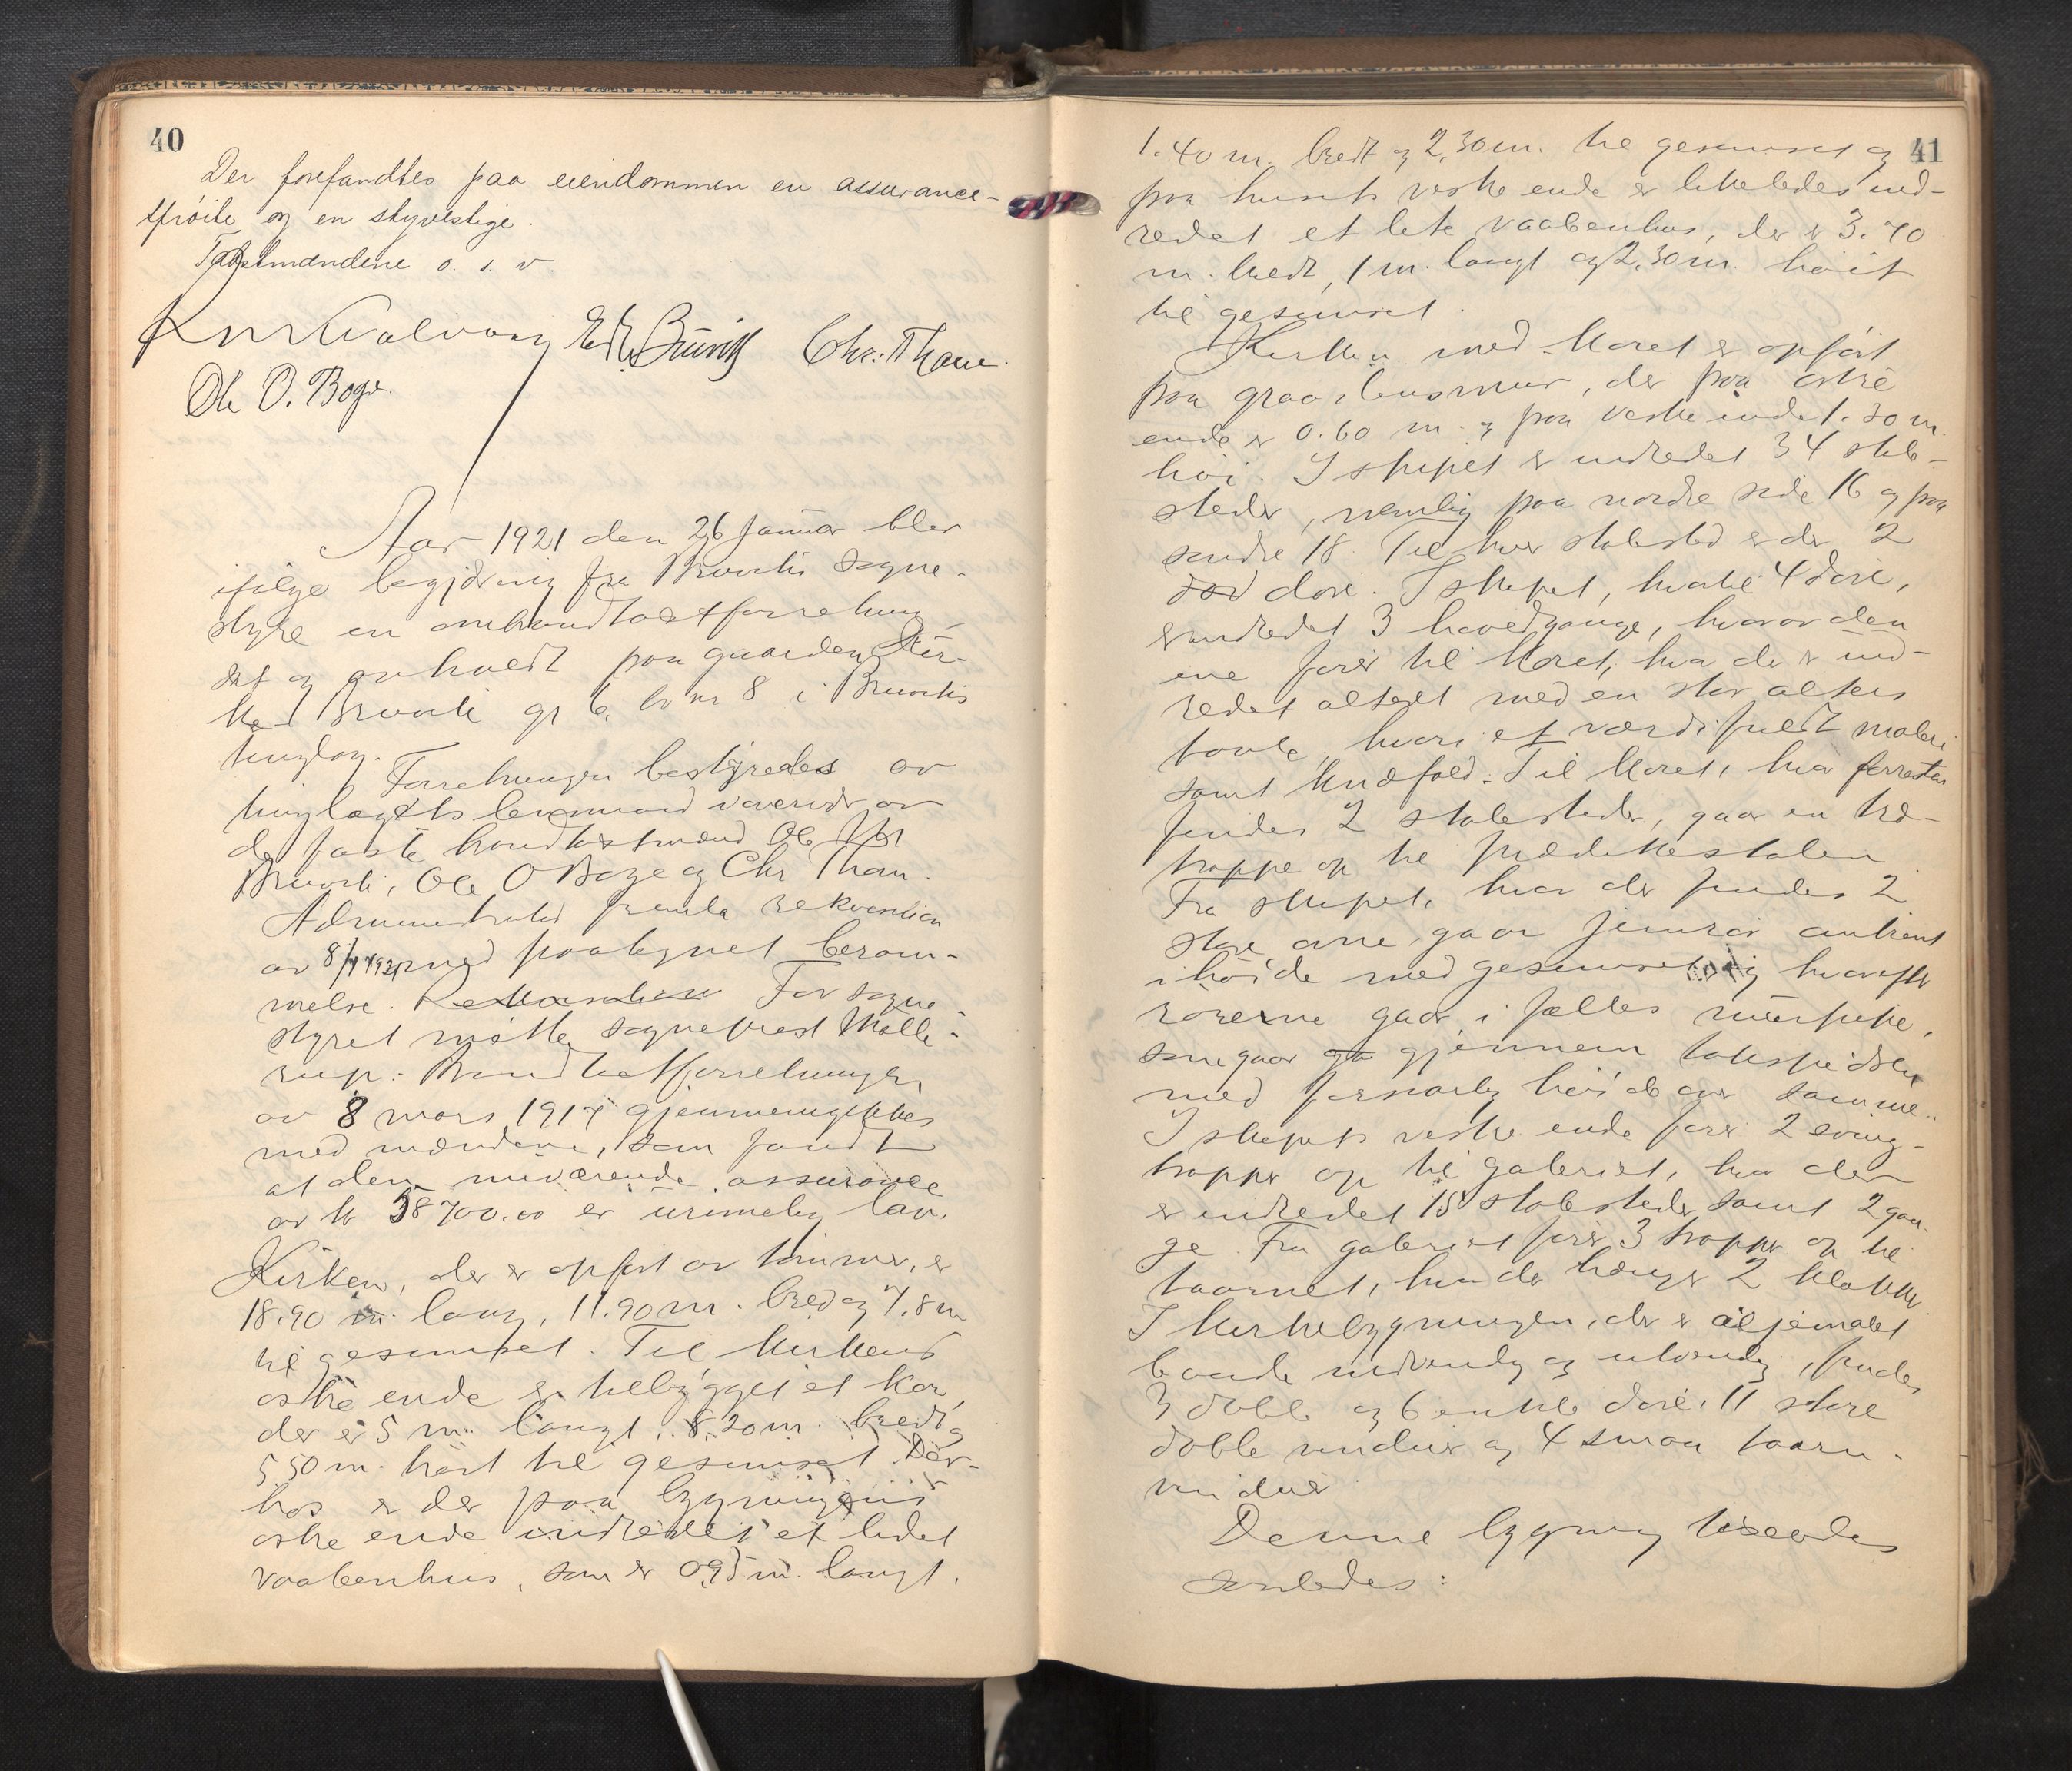 40
Der forefandtes paa eiendommen en assurance-
sprøite og en skyvestige.
Takstmændene o. s. v.
Chr: Thane.
Ole O. Boge.
Aar 1921 den 26 Januar blev
ifølge begjæring fra Bruvik sogne-
styre en ombrandtakstforretning
sat og avholdt paa gaarden Kir-
ke Bruvik gr 6, br nr 8 i Bruviks
tinglag.
Forretningen bestyredes av
tinglagets lensmand
de faste brandtakstmænd Ole
Bruvik, Ole O Boge og Chr Thane.
Administrator fremla rekvisition
av 8/1 1921 med paategnet beram-
melse. Rekvisition For sogne
styret møtte sogneprest Molle-
rup. Brandtakstforretningen
av 8 mars 1917 gjennemgikkes
med mændene, som fandt
at den nuværende assurance
av kr 58700.00 er urimelig lav.
Kirken, der er opført av tømmer, er
18.90 m. lang, 11.90 m. bred og 7.8 m
til gesimset. Til kirkens
østre ende er tilbygget et kor,
der er 5 m. langt, 8.20 m. bredt og
5.50 m. høit til gesimset. Der-
hos er der paa bygningens
østre ende indredet et lidet
vaabenhus, som er 0.95 m. langt,
41
1.40 m. bredt og 2.30 m. til gesimset og
paa husets vestre ende er likeledes ind-
redet et lite vaabenhus, der er 3.70
m. bredt, 1 m. langt og 2.30 m. høit
til gesimset.
Kirken med koret er opført
paa graastensmur, der paa østre
ende er 0.60 m. og paa vestre ende 1.30 m.
høi. I skipet er indredet 34 stole-
steder, nemlig paa nordre side 16 og paa
søndre 18. Til hver stolested er der 2
døre. I skipet, hvortil 4 døre,
er indredet 3 hovedgange, hvorav den
ene fører til koret, hvor der er ind-
redet alteret med en stor altertavle
hvori et værdifuldt maleri
samt knæfald. Til koret, hvor forresten
findes 2 stolesteder, gaar en træ-
trappe op til prædikestolen.
Fra skipet, hvor der findes 2
store ovne, gaar jernrør omtrent
i høide med gesimset, hvorefter
rørerne gaar i fælles murpipe,
som gaar gjennem takspidsen
med forsvarlig høide over samme.
I skipets vestre ende fører 2 sving-
trapper op til galeriet, hvor der
er indredet 15 stolesteder samt 2 gan-
ge. Fra galeriet fører 3 trapper op til
taarnet, hvor der hænger 2 klokker
I kirkebygningen, der er oljemalet
baade indvendig og utvendig, findes
3 doble og 6 enkle døre, 11 store
doble vinduer og 4 smaa taarn-
vinduer
Denne bygning takseredes
saaledes: